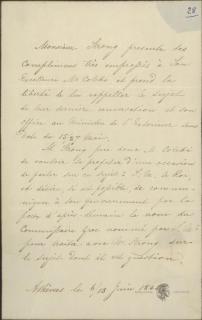 28
Monsieur Strong présente ses
compliments très empressés à Son
Excellence M. Coletti et prend la
liberté de lui rappeller le sujet
de leur dernière conversation et son
office au Ministre de l'Extérieur sous
date du 15/27 Mai.
M. Strong prie donc M. Coletti
de vouloir profiter d'une occasion
de parler sur ce sujet à S. M. le Roi,
et désire, s'il est possible de commu-
niquer à son gouvernement par la
poste d'après demain le nom du
Commissaire grec nommé par
pour traiter avec M. Strong sur
le sujet dont il est question.
Athènes le 6/18 Juin